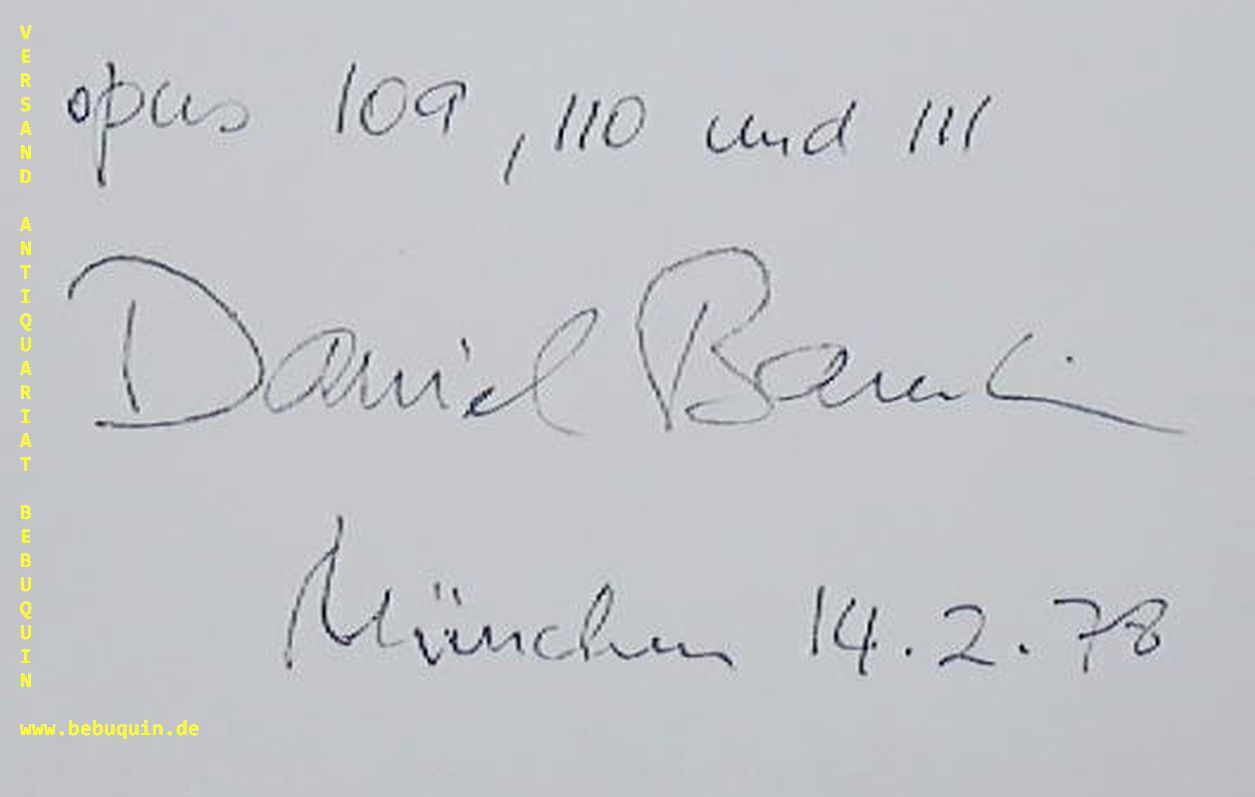 opus 109, 110 und 111
Daniel
München 14.2.78
VERSAND ANTIQUARIAT BEBUQUIN
www.bebuquin.de